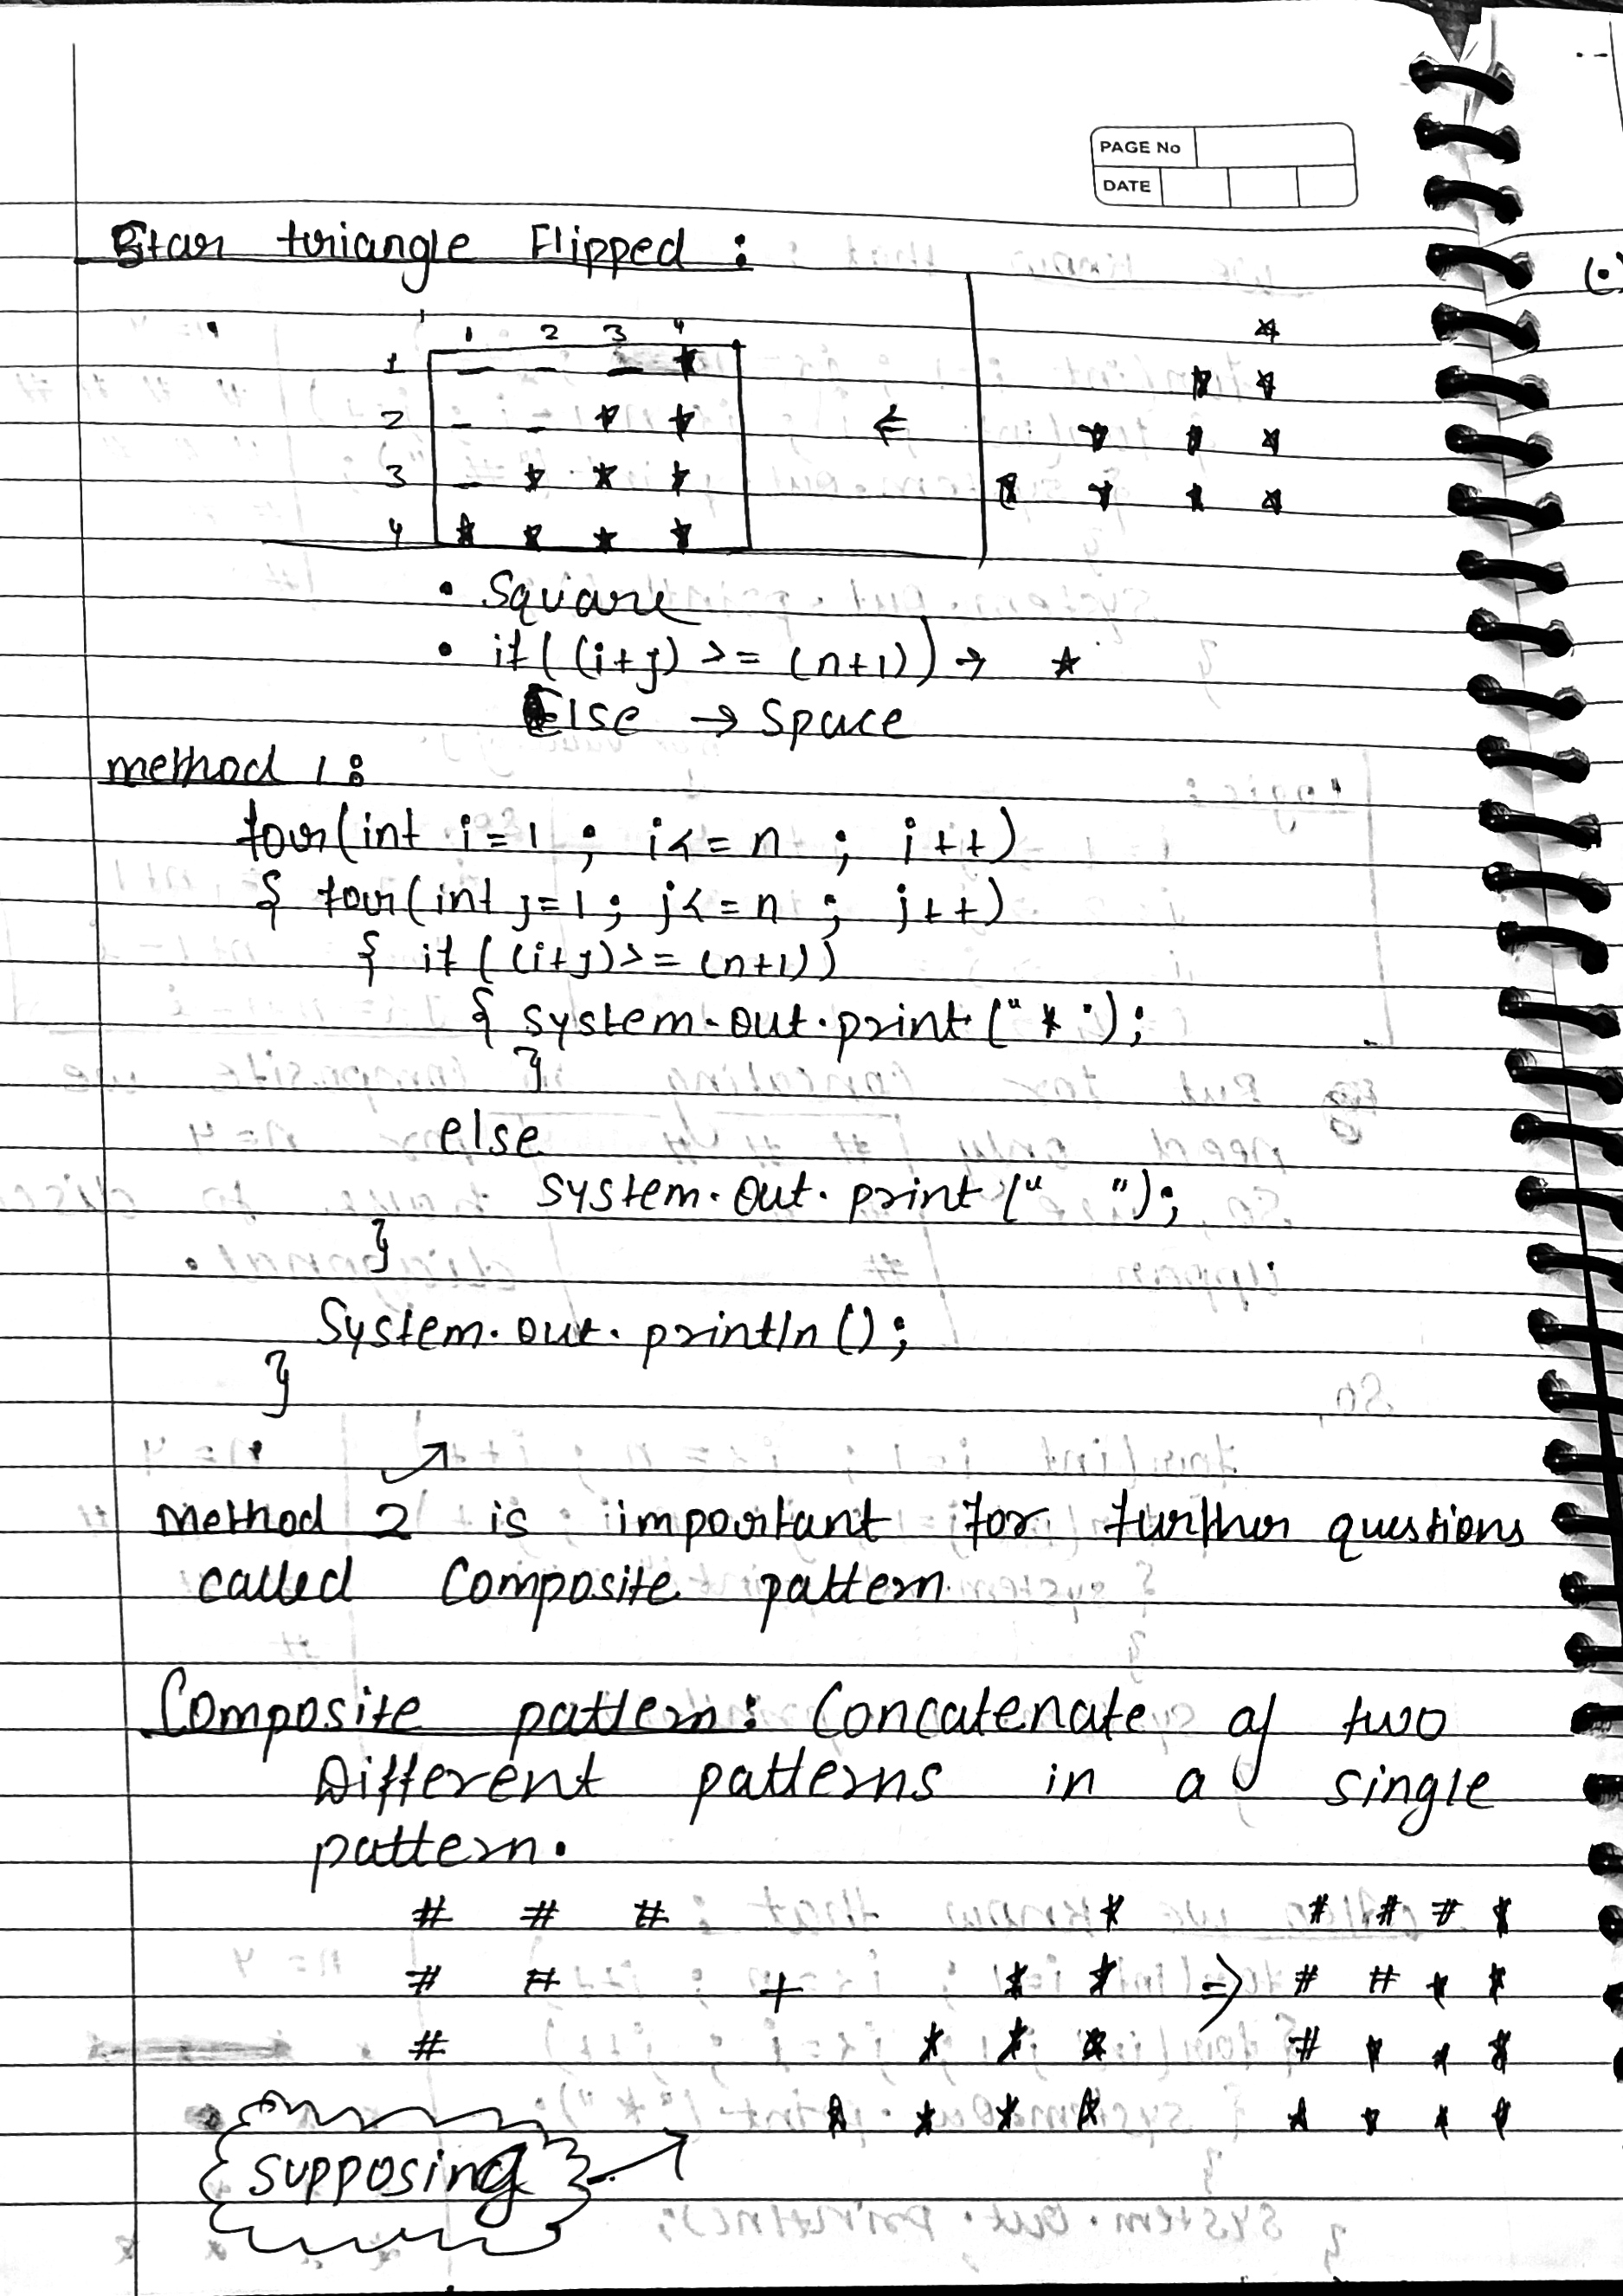 PAGE No
DATE
Star triangle Flipped :
1 2 3 4
1 _ _ _ *
2 _ _ * *
3 _ * * *
4 * * * *
←
*
* *
* * *
* * * *
• Square
• if( (i+j) >= (n+1)) → *
Else → Space
method 1 :
for(int i=1 ; i<=n ; i++)
{ for(int j=1 ; j<=n ; j++)
{ if ( (i+j)>= (n+1))
{ system.out.print ("*");
}
else
system.out.print (" ");
}
System.out.println();
}
Method 2 is important for further questions
called Composite pattern
Composite pattern : Concatenate of two
Different patterns in a single
pattern.
# # # * # # # *
# # + * * => # # * *
# * * * # * * *
* * * * * * * *
supposing